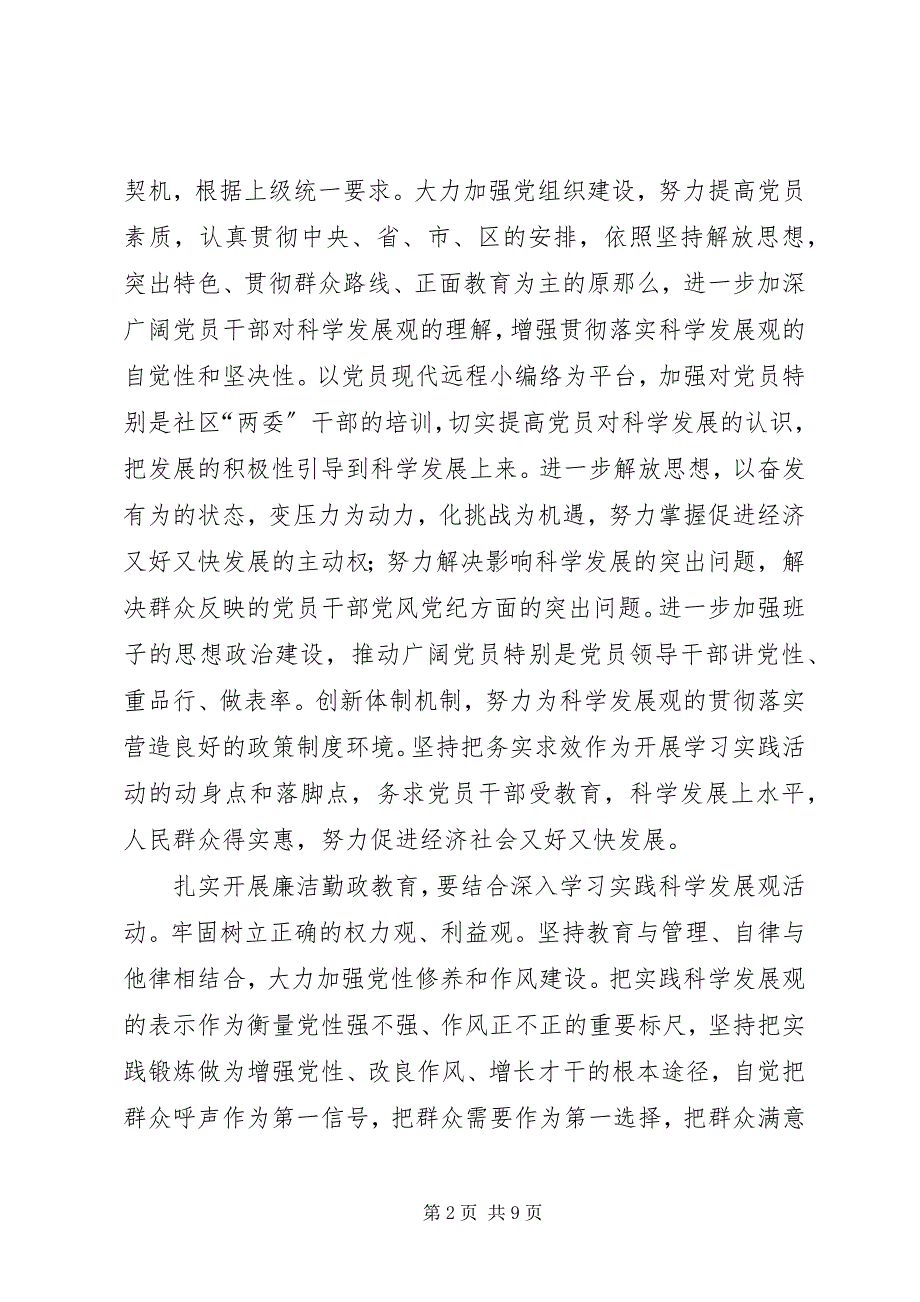 契机，根据上级统一要求。大力加强党组织建设，努力提高党员
素质，认真贯彻中央、省、市、区的安排，依照坚持解放思想，
突出特色、贯彻群众路线、正面教育为主的原那么，进一步加深
广阔党员干部对科学发展观的理解，增强贯彻落实科学发展观的
自觉性和坚决性。以党员现代远程小编络为平台，加强对党员特
别是社区“两委〞干部的培训，切实提高党员对科学发展的认识，
把发展的积极性引导到科学发展上来。进一步解放思想，以奋发
有为的状态，变压力为动力，化挑战为机遇，努力掌握促进经济
又好又快发展的主动权；努力解决影响科学发展的突出问题，解
决群众反映的党员干部党风党纪方面的突出问题。进一步加强班
子的思想政治建设，推动广阔党员特别是党员领导干部讲党性、
重品行、做表率。创新体制机制，努力为科学发展观的贯彻落实
营造良好的政策制度环境。坚持把务实求效作为开展学习实践活
动的动身点和落脚点，务求党员干部受教育，科学发展上水平，
人民群众得实惠，努力促进经济社会又好又快发展。
扎实开展廉洁勤政教育，要结合深入学习实践科学发展观活
动。牢固树立正确的权力观、利益观。坚持教育与管理、自律与
他律相结合，大力加强党性修养和作风建设。把实践科学发展观
的表示作为衡量党性强不强、作风正不正的重要标尺，坚持把实
践锻炼做为增强党性、改良作风、增长才干的根本途径，自觉把
群众呼声作为第一信号，把群众需要作为第一选择，把群众满意
第 2 页 共 9 页